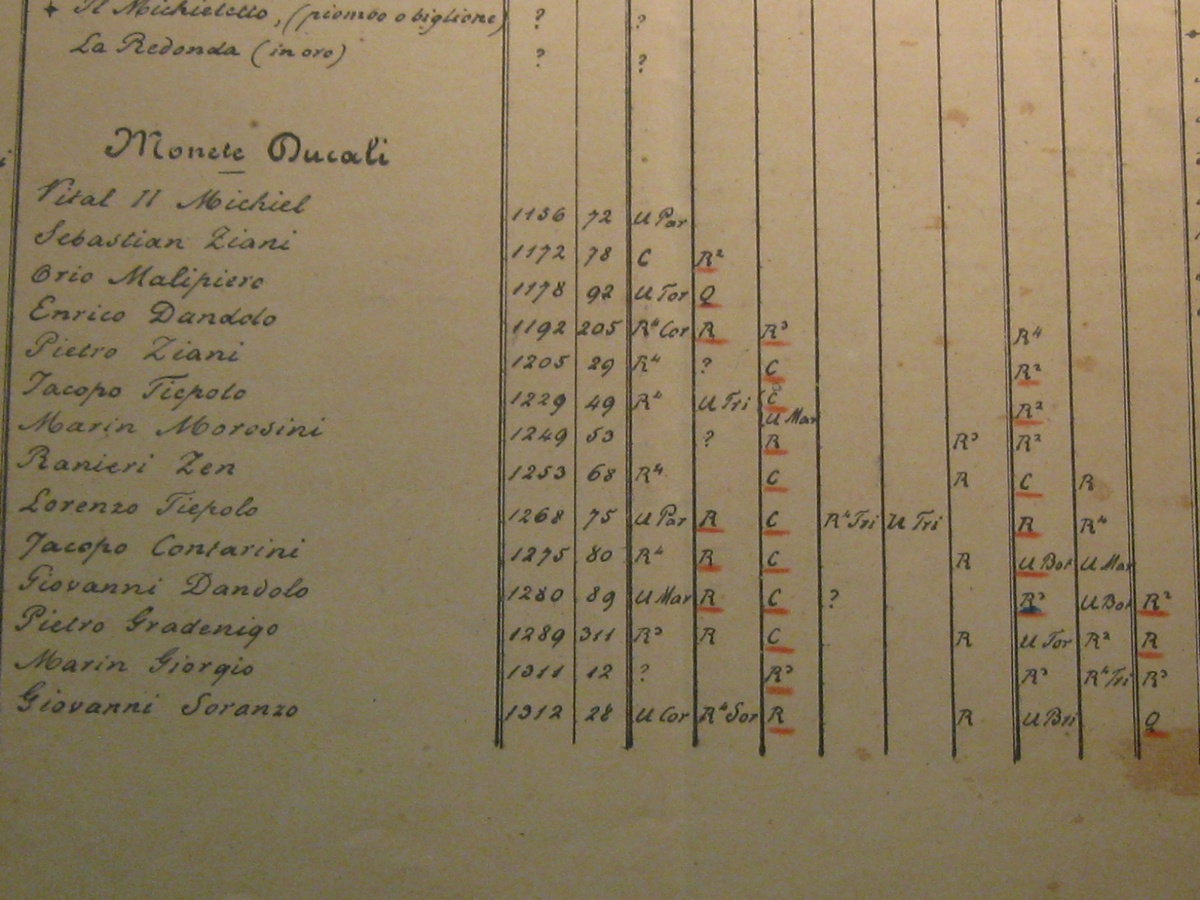 Il Michieletto, (piombo o biglione) ? ?
La Redonda (in oro) ? ?
Monete Ducali
Vital II Michiel 1156 72 U Par
Sebastian Ziani 1172 78 C R²
Orio Malipiero 1178 92 U Tor Q
Enrico Dandolo 1192 205 R⁴ Cor R R³ R⁴
Pietro Ziani 1205 29 R⁴ ? C R²
Jacopo Tiepolo 1229 49 R⁴ U Tri C U Mar R²
Marin Morosini 1249 53 ? R R³ R²
Ranieri Zen 1253 68 R⁴ C R C R
Lorenzo Tiepolo 1268 75 U Par R C R⁴ Tri U Tri R R⁴
Jacopo Contarini 1275 80 R⁴ R C R U Bot U Mar
Giovanni Dandolo 1280 89 U Mar R C ? R³ U Bot R²
Pietro Gradenigo 1289 311 R³ R C R U Tor R² R
Marin Giorgio 1311 12 ? R³ R³ R⁴ Tri R³
Giovanni Soranzo 1312 28 U Cor R⁴ Sor R R U Bri Q